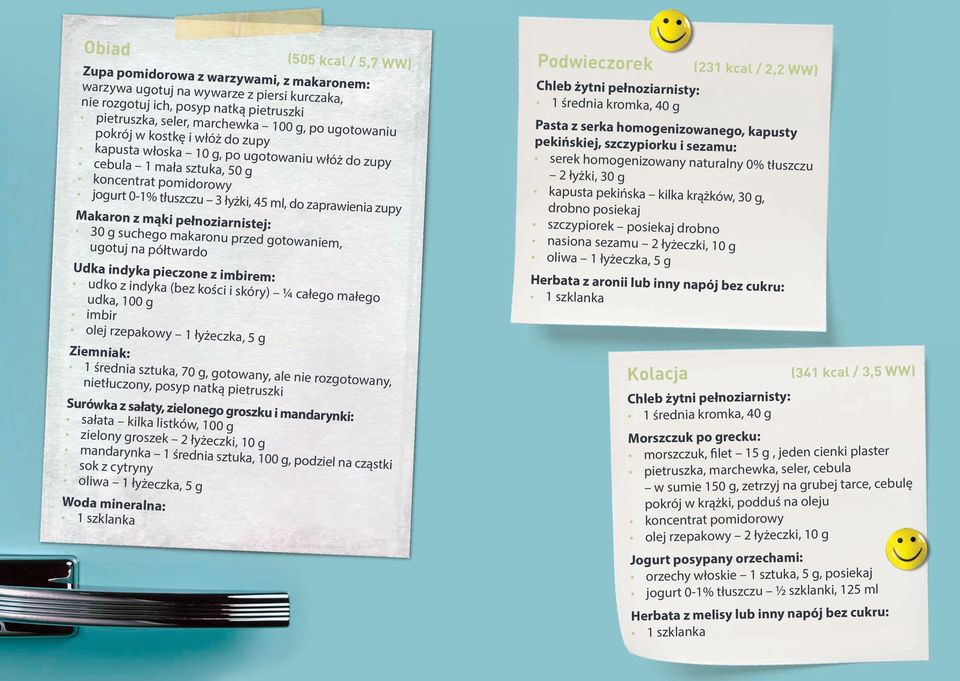 Obiad
(505 kcal / 5,7 WW)
Zupa pomidorowa z warzywami, z makaronem:
warzywa ugotuj na wywarze z piersi kurczaka,
nie rozgotuj ich, posyp natką pietruszki
• pietruszka, seler, marchewka 100 g, po ugotowaniu
pokrój w kostkę i włóż do zupy
• kapusta włoska 10 g, po ugotowaniu włóż do zupy
• cebula 1 mała sztuka, 50 g
• koncentrat pomidorowy
• jogurt 0-1% tłuszczu 3 łyżki, 45 ml, do zaprawienia zupy
Makaron z mąki pełnoziarnistej:
• 30 g suchego makaronu przed gotowaniem,
ugotuj na półtwardo
Udka indyka pieczone z imbirem:
• udko z indyka (bez kości i skóry) – ¼ całego małego
udka, 100 g
• imbir
• olej rzepakowy – 1 łyżeczka, 5 g
Ziemniak:
• 1 średnia sztuka, 70 g, gotowany, ale nie rozgotowany,
nietłuczony, posyp natką pietruszki
Surówka z sałaty, zielonego groszku i mandarynki:
• sałata – kilka listków, 100 g
• zielony groszek – 2 łyżeczki, 10 g
• mandarynka – 1 średnia sztuka, 100 g, podziel na cząstki
• sok z cytryny
• oliwa – 1 łyżeczka, 5 g
Woda mineralna:
• 1 szklanka
Podwieczorek
(231 kcal / 2,2 WW)
Chleb żytni pełnoziarnisty:
• 1 średnia kromka, 40 g
Pasta z serka homogenizowanego, kapusty
pekińskiej, szczypiorku i sezamu:
• serek homogenizowany naturalny 0% tłuszczu
– 2 łyżki, 30 g
• kapusta pekińska – kilka krążków, 30 g,
drobno posiekaj
• szczypiorek – posiekaj drobno
• nasiona sezamu – 2 łyżeczki, 10 g
• oliwa – 1 łyżeczka, 5 g
Herbata z aronii lub inny napój bez cukru:
• 1 szklanka
Kolacja
(341 kcal / 3,5 WW)
Chleb żytni pełnoziarnisty:
• 1 średnia kromka, 40 g
Morszczuk po grecku:
• morszczuk, filet – 15 g , jeden cienki plaster
• pietruszka, marchewka, seler, cebula
– w sumie 150 g, zetrzyj na grubej tarce, cebulę
pokrój w krążki, podduś na oleju
• koncentrat pomidorowy
• olej rzepakowy – 2 łyżeczki, 10 g
Jogurt posypany orzechami:
• orzechy włoskie – 1 sztuka, 5 g, posiekaj
• jogurt 0-1% tłuszczu – ½ szklanki, 125 ml
Herbata z melisy lub inny napój bez cukru:
• 1 szklanka